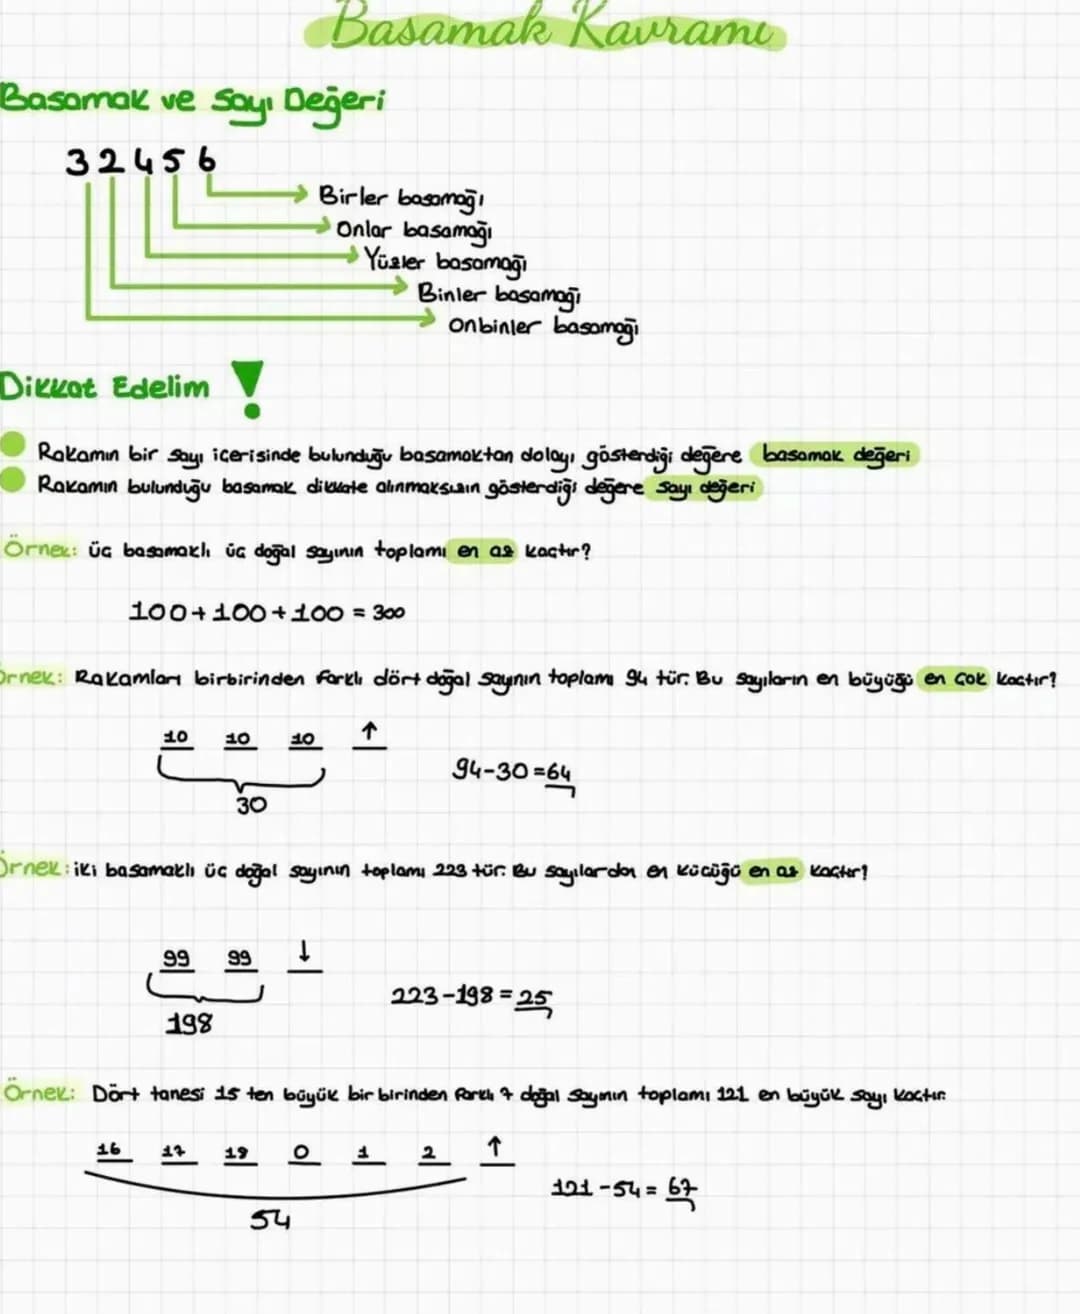 Basamak Kavramı
Basamak ve Sayı Değeri
32456
Birler basamağı
Onlar basamağı
Yüzler basamağı
Binler basamağı
Onbinler basamağı
Dikkat Edelim !
Rakamın bir sayı içerisinde bulunduğu basamaktan dolayı gösterdiği değere basamak değeri
Rakamın bulunduğu basamak dikkate alınmaksızın gösterdiği değere sayı değeri
Örnek: üç basamaklı üç doğal sayının toplamı en az kaçtır?
100+100+100 = 300
Örnek: Rakamları birbirinden farklı dört doğal sayının toplamı 94 tür. Bu sayıların en büyüğü en çok kaçtır?
10 10 10 ↑
94-30=64
30
Örnek: iki basamaklı üç doğal sayının toplamı 223 tür. Bu sayılardan en küçüğü en az kaçtır?
99 99 ↓
223-198=25
198
Örnek: Dört tanesi 15 ten büyük bir birinden farklı 7 doğal sayının toplamı 121 en büyük sayı kaçtır.
16 17 18 0 1 2 ↑
121-54= 67
54